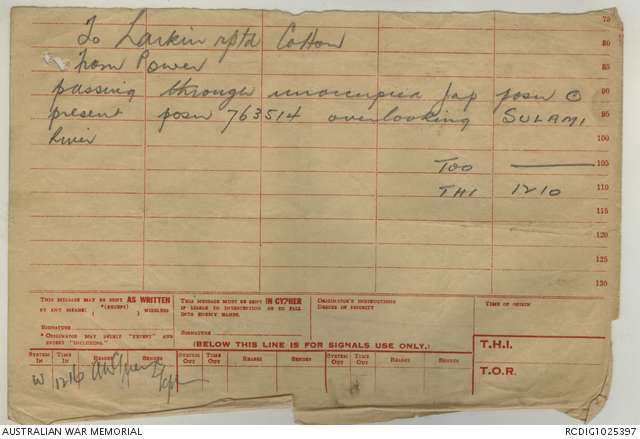 75
To Larkin rptd Cotton
80
from Power
85
passing through unoccupied Jap posn ⊙
90
present posn 763514 overlooking SULAMI
95
River
TOO ———
105
THI 1210
110
115
120
130
THIS MESSAGE MAY BE SENT AS WRITTEN
BY ANY MEANS. *(EXCEPT) ( ) WIRELESS
SIGNATURE
* ORIGINATOR MAY DELETE "EXCEPT" AND
INSERT "INCLUDING."
THIS MESSAGE MUST BE SENT IN CYPHER
IF LIABLE TO INTERCEPTION OR TO FALL
INTO ENEMY HANDS.
SIGNATURE
ORIGINATOR'S INSTRUCTIONS
DEGREE OF PRIORITY
TIME OF ORIGIN
(BELOW THIS LINE IS FOR SIGNALS USE ONLY.)
T.H.I.
T.O.R.
SYSTEM IN TIME IN READER SENDER SYSTEM OUT TIME OUT READER SENDER SYSTEM OUT TIME OUT READER SENDER
W 1216
AUSTRALIAN WAR MEMORIAL
RCDIG1025397